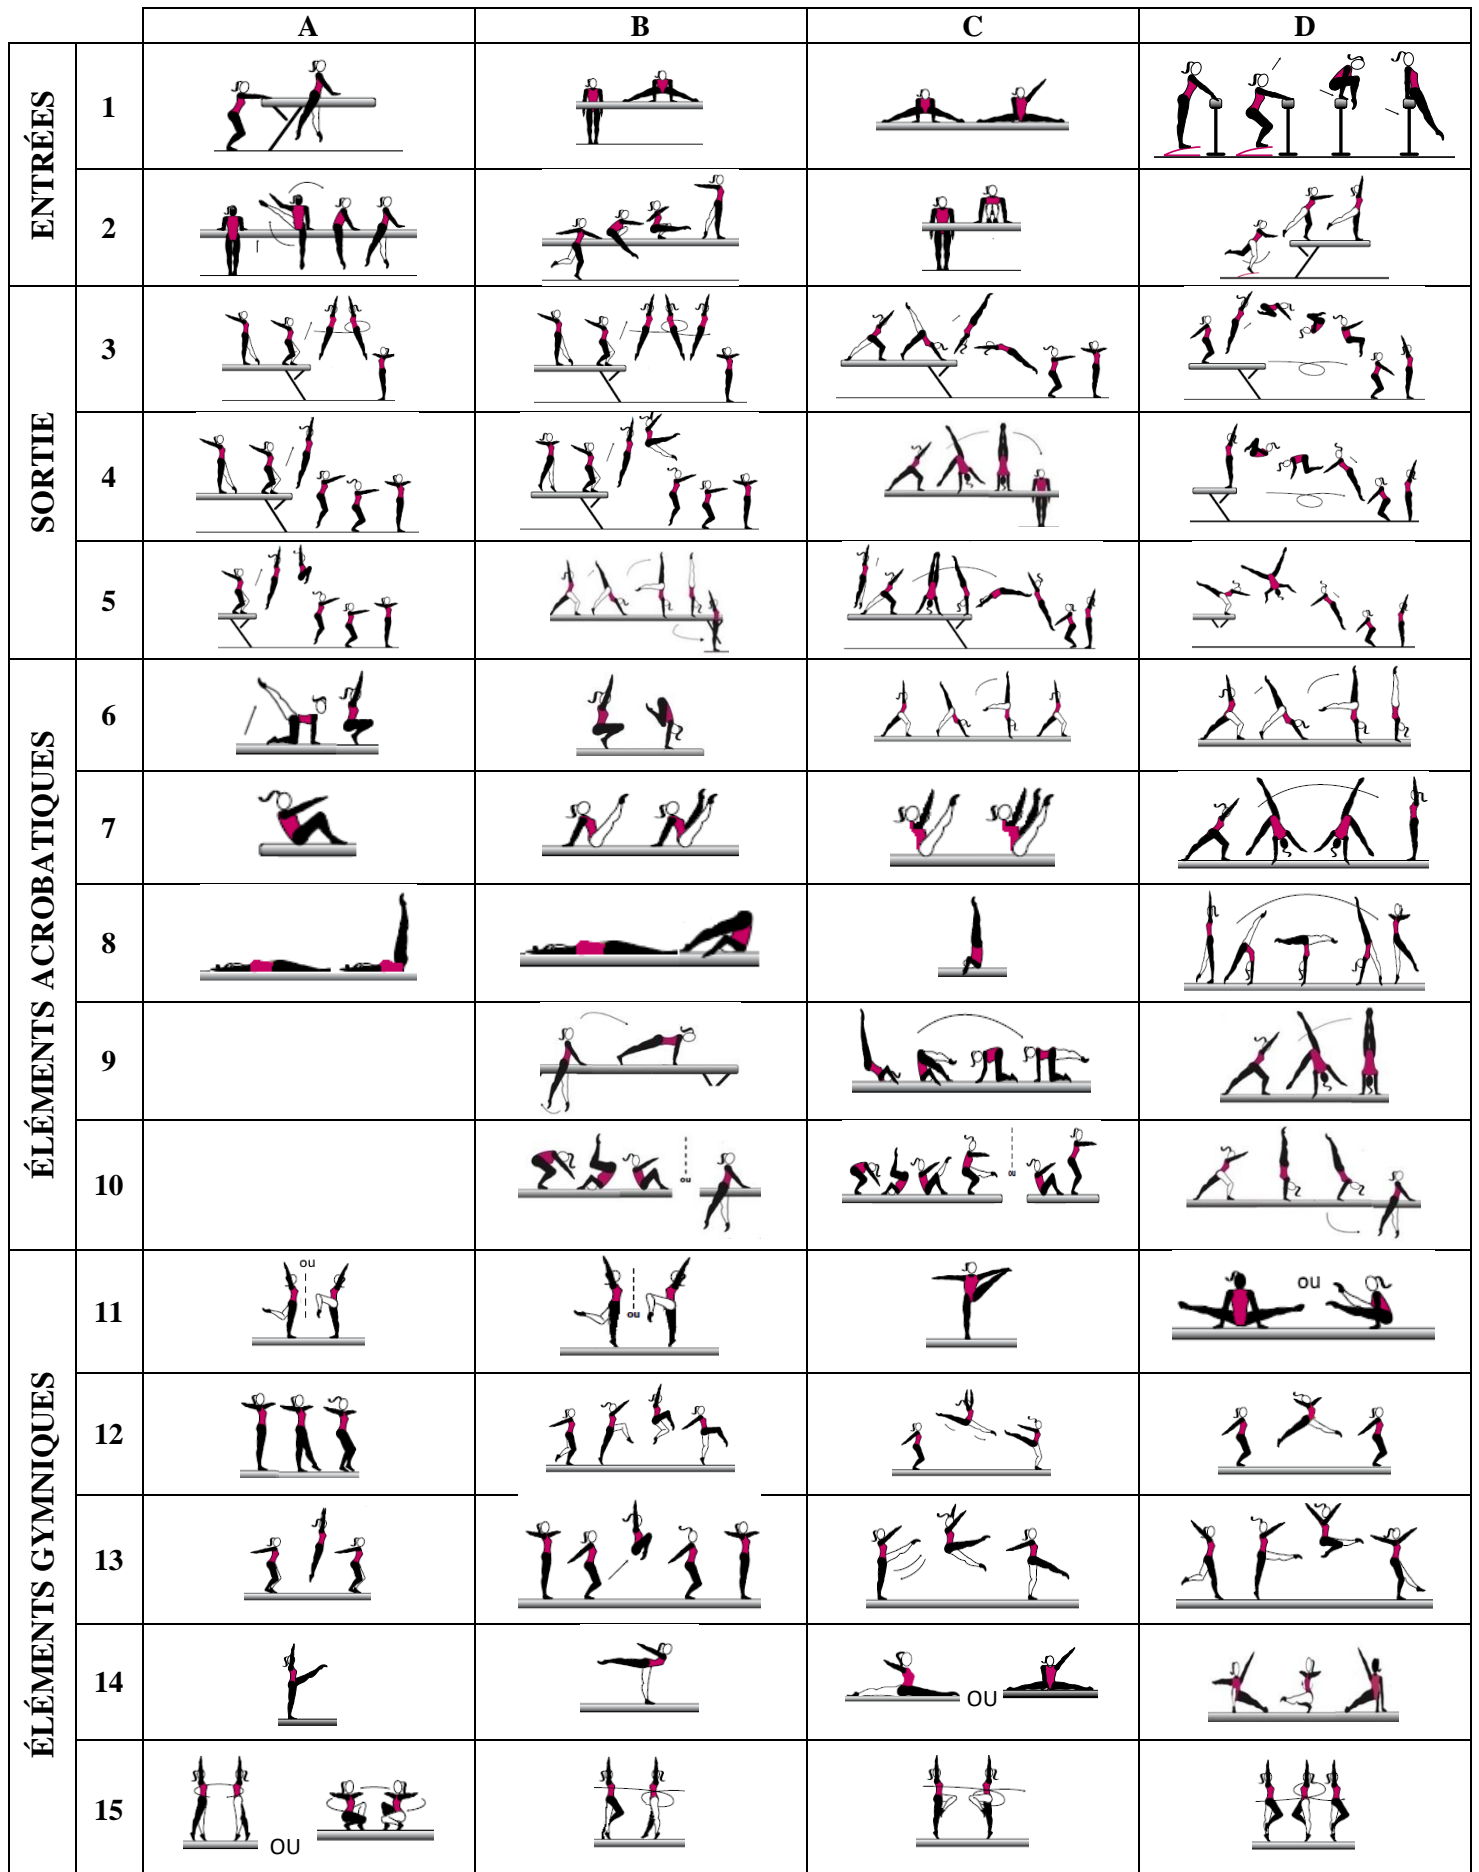 A B C D
ENTRÉES
1
2
SORTIE
3
4
5
ÉLÉMENTS ACROBATIQUES
6
7
8
9
10
ou
ou
ÉLÉMENTS GYMNIQUES
11
ou
ou
ou
12
13
14
OU
15
OU